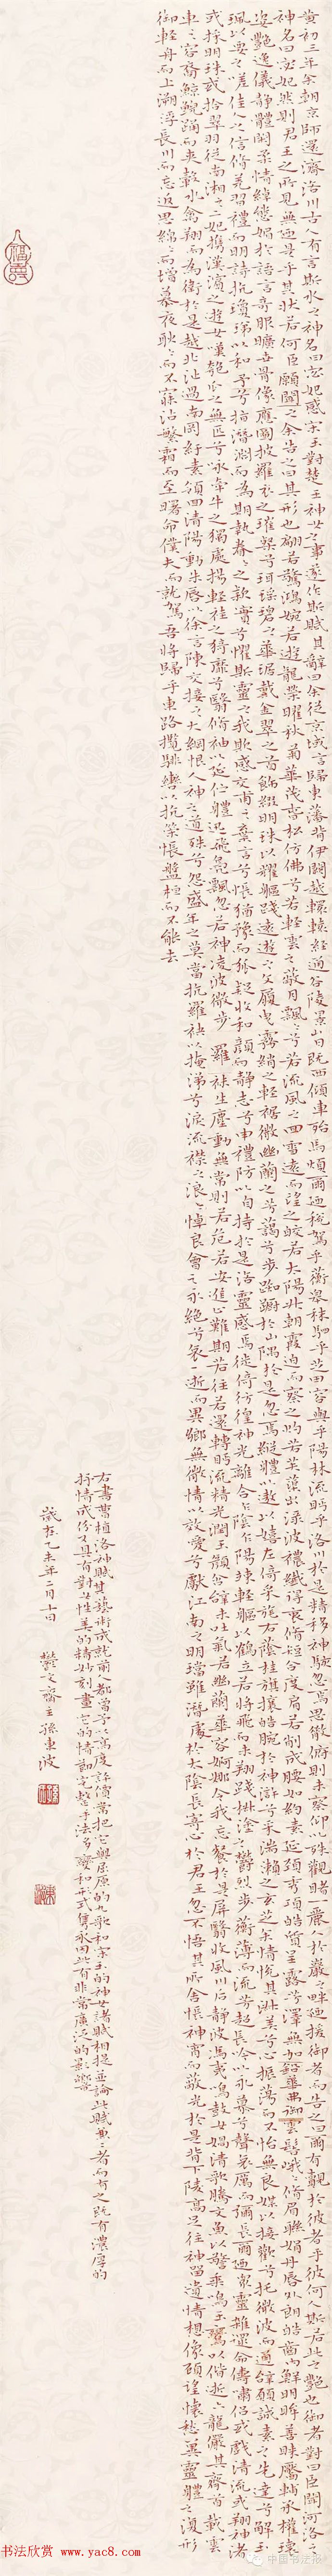 黄初三年余朝京師還濟洛川古人有言斯水之神名曰宓妃感宋玉對楚王神女之事遂作斯賦其辭曰余從京域言歸東藩背伊闕越轘轅經通谷陵景山日既西傾車殆馬煩爾迺稅駕乎蘅皋秣駟乎芝田容與乎陽林流眄乎洛川於是精移神駭忽焉思散俯則未察仰以殊觀睹一麗人於巖之畔迺援御者而告之曰爾有覿於彼者乎彼何人斯若此之艷也御者對曰臣聞河洛之
神名曰宓妃然則君王之所見無迺是乎其狀若何臣願聞之余告之曰其形也翩若驚鴻婉若遊龍榮曜秋菊華茂春松仿佛兮若輕雲之蔽月飄飄兮若流風之回雪遠而望之皎若太陽升朝霞迫而察之灼若芙蕖出淥波襛纖得衷脩短合度肩若削成腰如約素延頸秀項皓質呈露芳澤無加鉛華弗御雲髻峩峩脩眉聯娟丹脣外朗皓齒內鮮明眸善睞靨輔承權瓌
姿艷逸儀靜體閑柔情綽態媚於語言奇服曠世骨像應圖披羅衣之璀粲兮珥瑤碧之華琚戴金翠之首飾綴明珠以耀軀踐遠遊之文履曳霧綃之輕裾微幽蘭之芳藹兮步踟躕於山隅於是忽焉縱體以遨以嬉左倚采旄右蔭桂旗攘皓腕於神滸兮采湍瀨之玄芝余情悅其淑美兮心振蕩而不怡無良媒以接歡兮托微波而通辭願誠素之先達兮解玉
珮以要之嗟佳人之信脩羌習禮而明詩抗瓊珶以和予兮指潛淵而為期執眷眷之款實兮懼斯靈之我欺感交甫之棄言兮悵猶豫而狐疑收和顏而靜志兮申禮防以自持於是洛靈感焉徙倚彷徨神光離合乍陰乍陽竦輕軀以鶴立若將飛而未翔踐椒塗之郁烈步蘅薄而流芳超長吟以永慕兮聲哀厲而彌長爾迺衆靈雜遝命儔嘯侶或戲清流或翔神渚
或採明珠或拾翠羽從南湘之二妃攜漢濱之遊女歎匏瓜之無匹兮詠牽牛之獨處揚輕袿之猗靡兮翳脩袖以延佇體迅飛鳧飄忽若神凌波微步羅襪生塵動無常則若危若安進止難期若往若還轉眄流精光潤玉顏含辭未吐氣若幽蘭華容婀娜令我忘餐於是屏翳收風川后靜波馮夷鳴鼓女媧清歌騰文魚以警乘鳴玉鸞以偕逝六龍儼其齊首載雲
車之容裔鯨鯢踊而夾轂水禽翔而為衛於是越北沚過南岡紆素領回清陽動朱脣以徐言陳交接之大綱恨人神之道殊兮怨盛年之莫當抗羅袂以掩涕兮淚流襟之浪浪悼良會之永絕兮哀一逝而異鄉無微情以效愛兮獻江南之明璫雖潛處於太陰長寄心於君王忽不悟其所舍悵神宵而蔽光於是背下陵高足往神留遺情想像顧望懷愁冀靈體之復形
御輕舟而上溯浮長川而忘返思綿綿而增慕夜耿耿而不寐沾繁霜而至曙命僕夫而就駕吾將歸乎東路攬騑轡以抗策悵盤桓而不能去
右書曹植洛神賦其藝術成就前人都曾予以高度評價常把它與屈原的九歌和宋玉的神女諸賦相提並論此賦兼二者而有之既有濃厚的
抒情成份又具有對女性美的精妙刻畫它的情節完整手法多變和形式雋永因此有非常廣泛的影響
歲在乙未年二月十四 齋主孫東波
书法欣赏 www.yac8.com
中国书法报